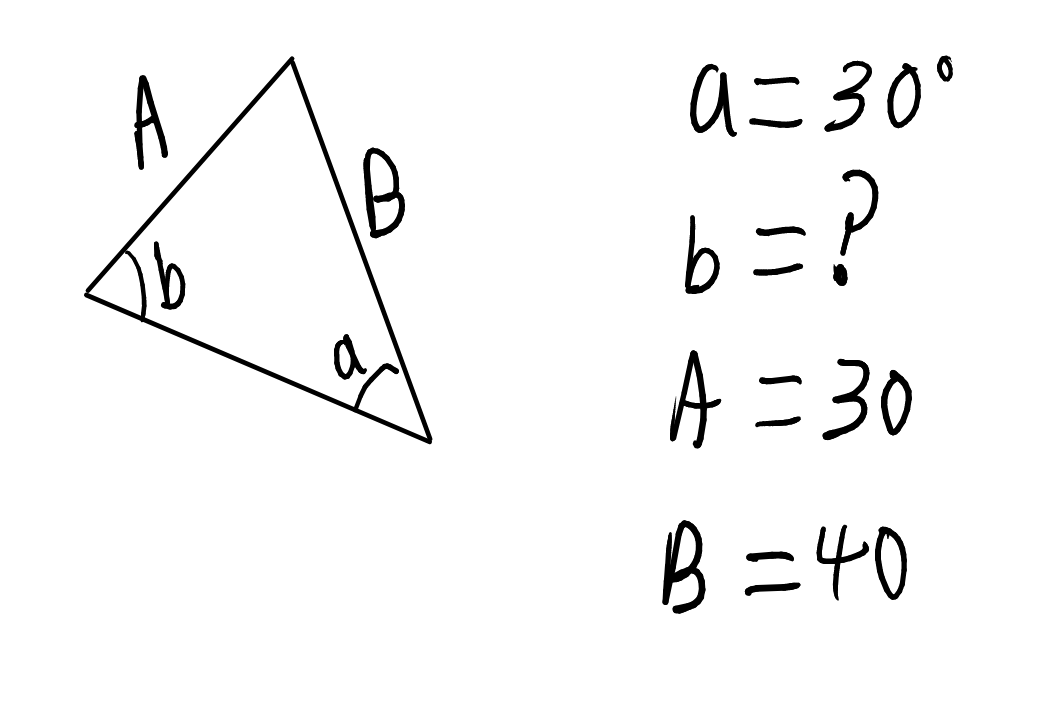 A
B
b
a
a=30°
b=?
A=30
B=40